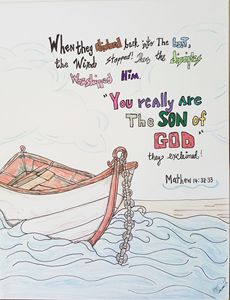 When they climbed back into The boat,
the Wind stopped! Then the disciples
Worshipped Him.
"You really Are
The SON of
GOD"
they exclaimed!
Mathew 14:32-33